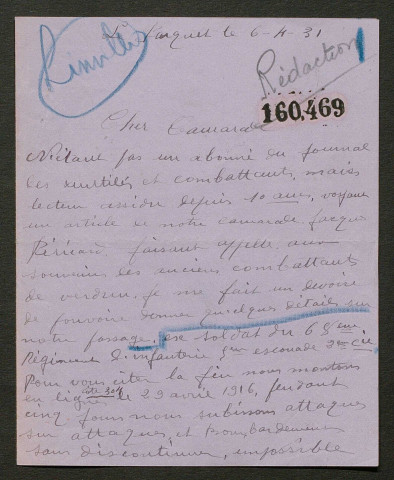 le 6-4-31
Rédaction
160,469
Cher Camarade
N'étant pas un abonné du journal
les mutilés et combattants, mais
lecteur assidu depuis 10 ans, voyant
un article de notre camarade Jacques
Péricard, faisant appelle aux
souvenirs des anciens combattants
de verdun, je me fait un devoire
de pouvoire donner quelques détails sur
notre passage, soldat du 68 eme
Régiment d'infanterie escouade 2eme cie
Pour vous citer la feu nous montons
en lignes côte 304 le 29 avril 1916, pendant
cinq jours nous subissons attaques
sur attaques, et bombardements
sans discontinuer, impossible